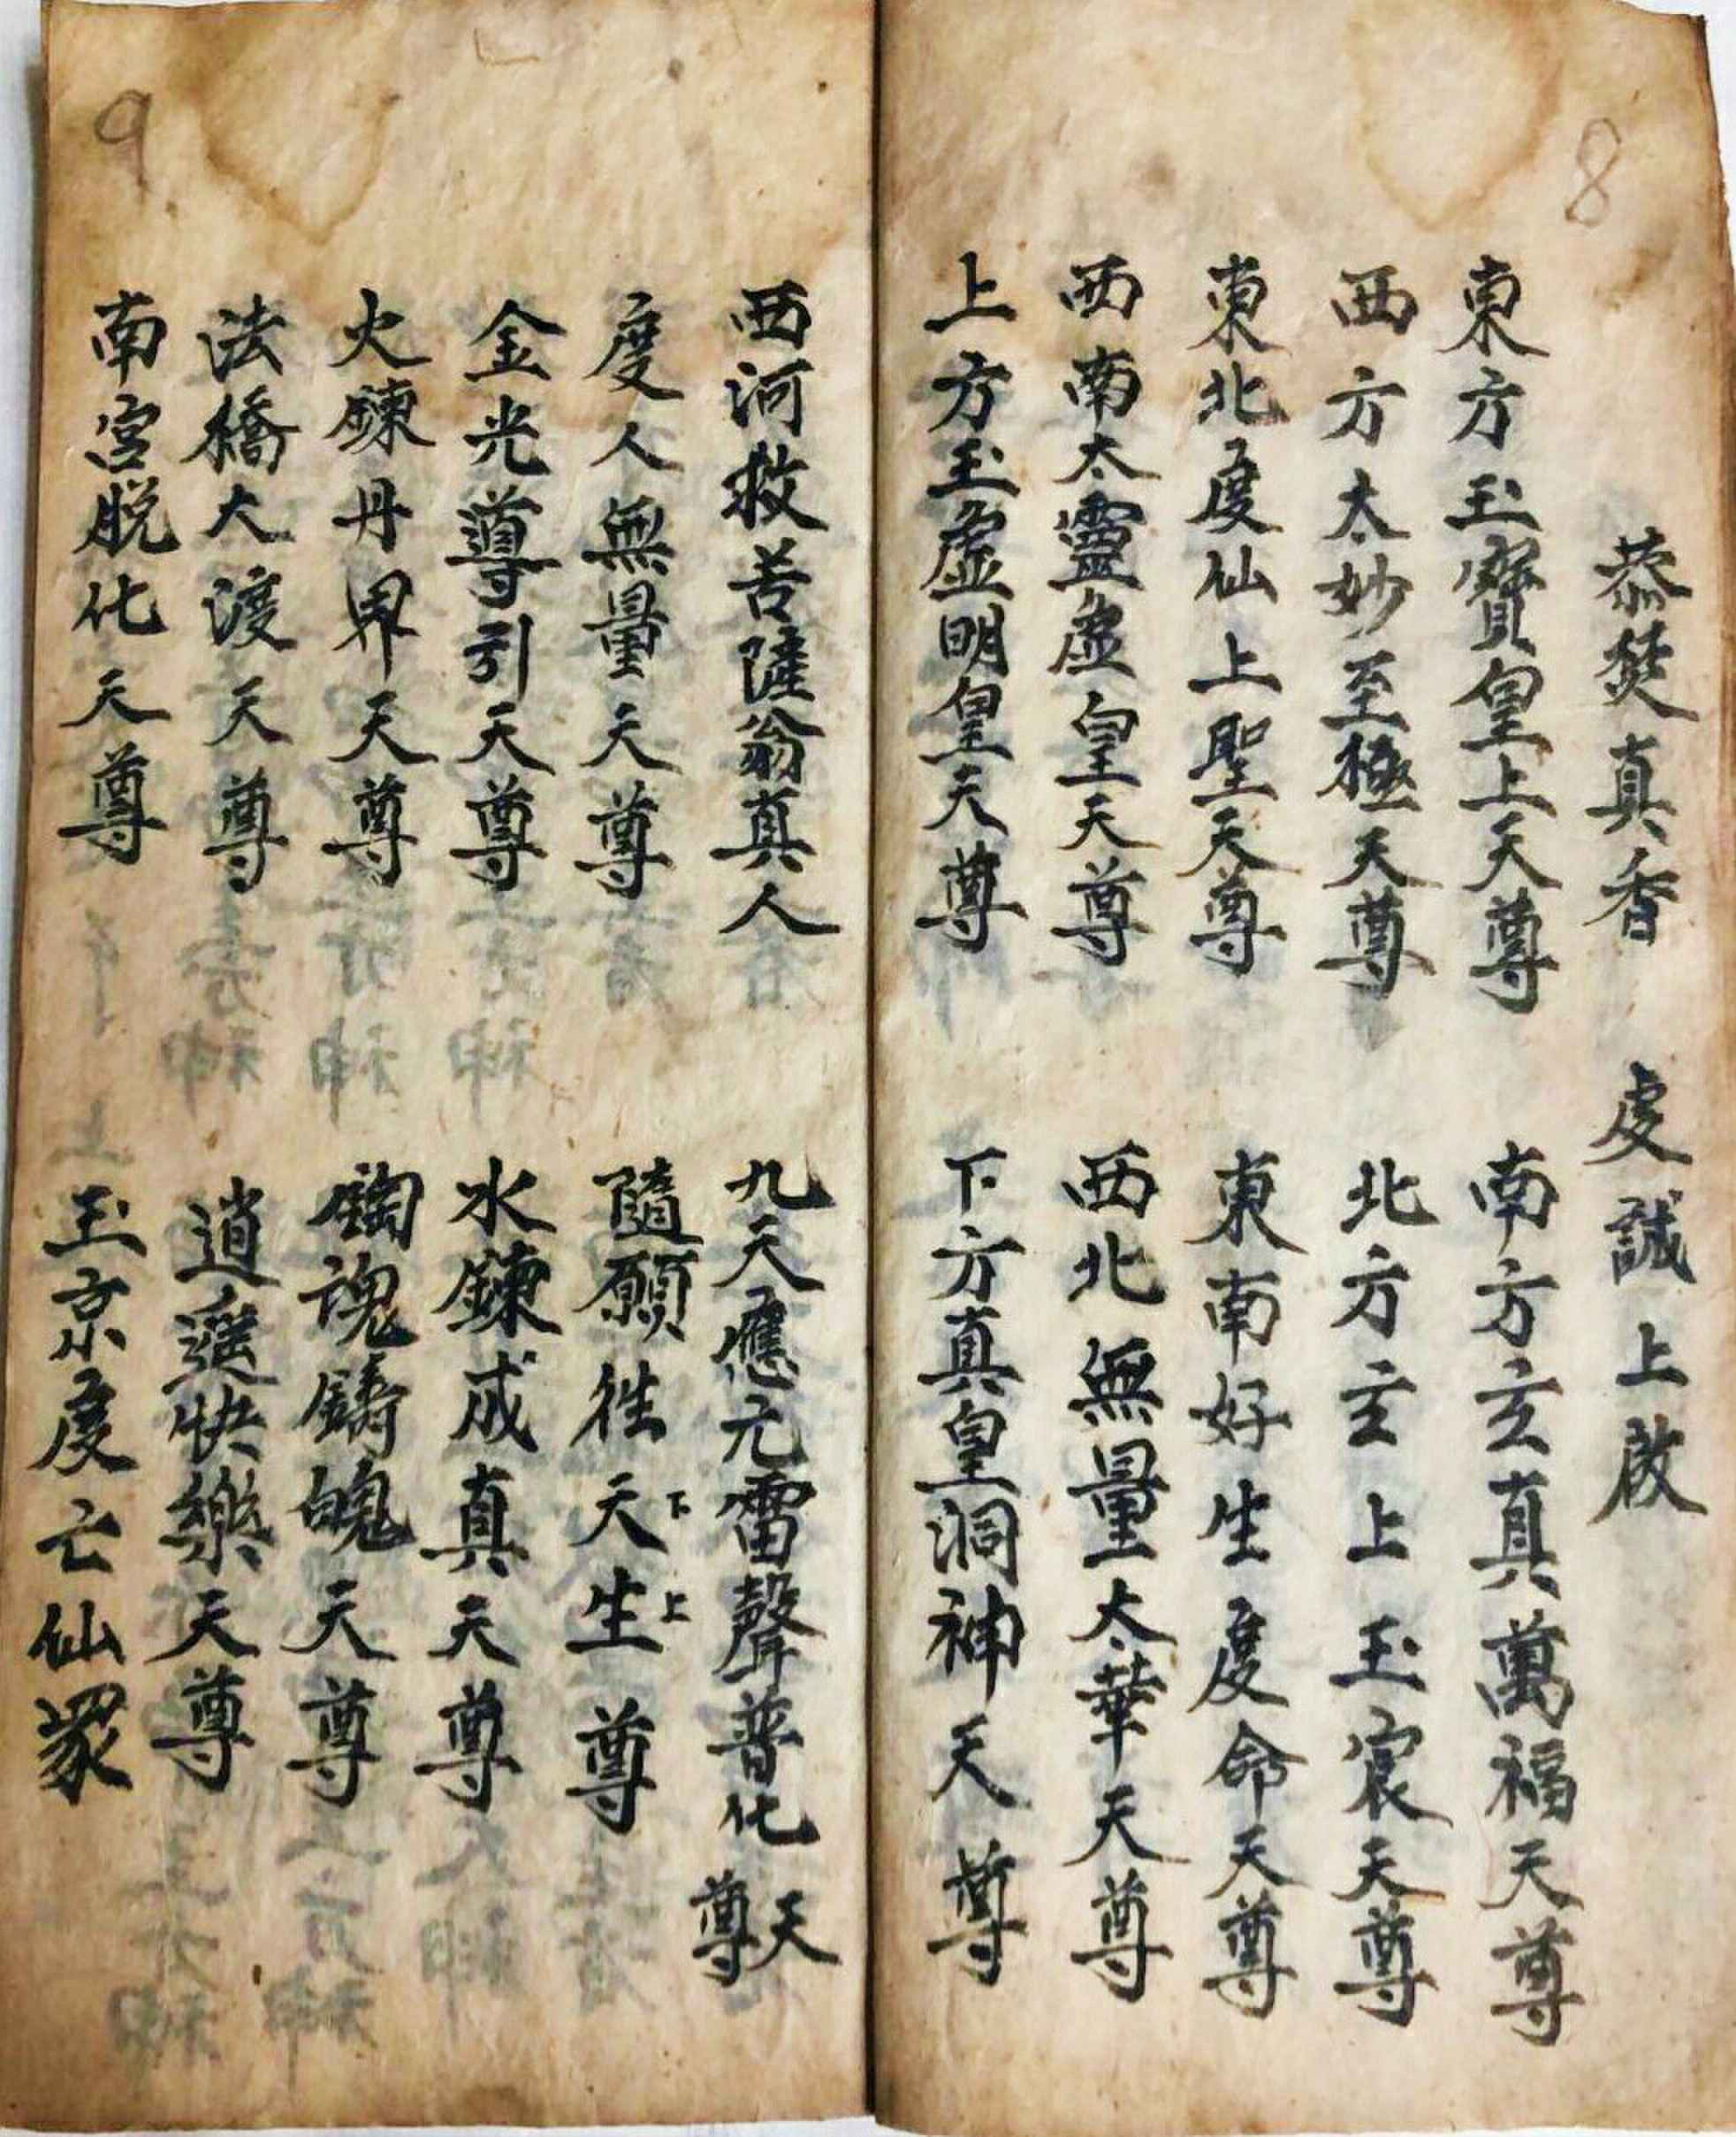 8
恭焚真香　虔誠上啟
東方玉寶皇上天尊　南方玄真萬福天尊
西方太妙至極天尊　北方玄上玉宸天尊
東北度仙上聖天尊　東南好生度命天尊
西南太靈虛皇天尊　西北無量太華天尊
上方玉虛明皇天尊　下方真皇洞神天尊
9
西河救苦薩翁真人　九天應元雷聲普化天尊
度人無量天尊　隨願往天下生上尊
金光導引天尊　水鍊成真天尊
火鍊丹界天尊　鋾魂鑄魄天尊
法橋大渡天尊　逍遙快樂天尊
南宮脱化天尊　玉京度亡仙眾